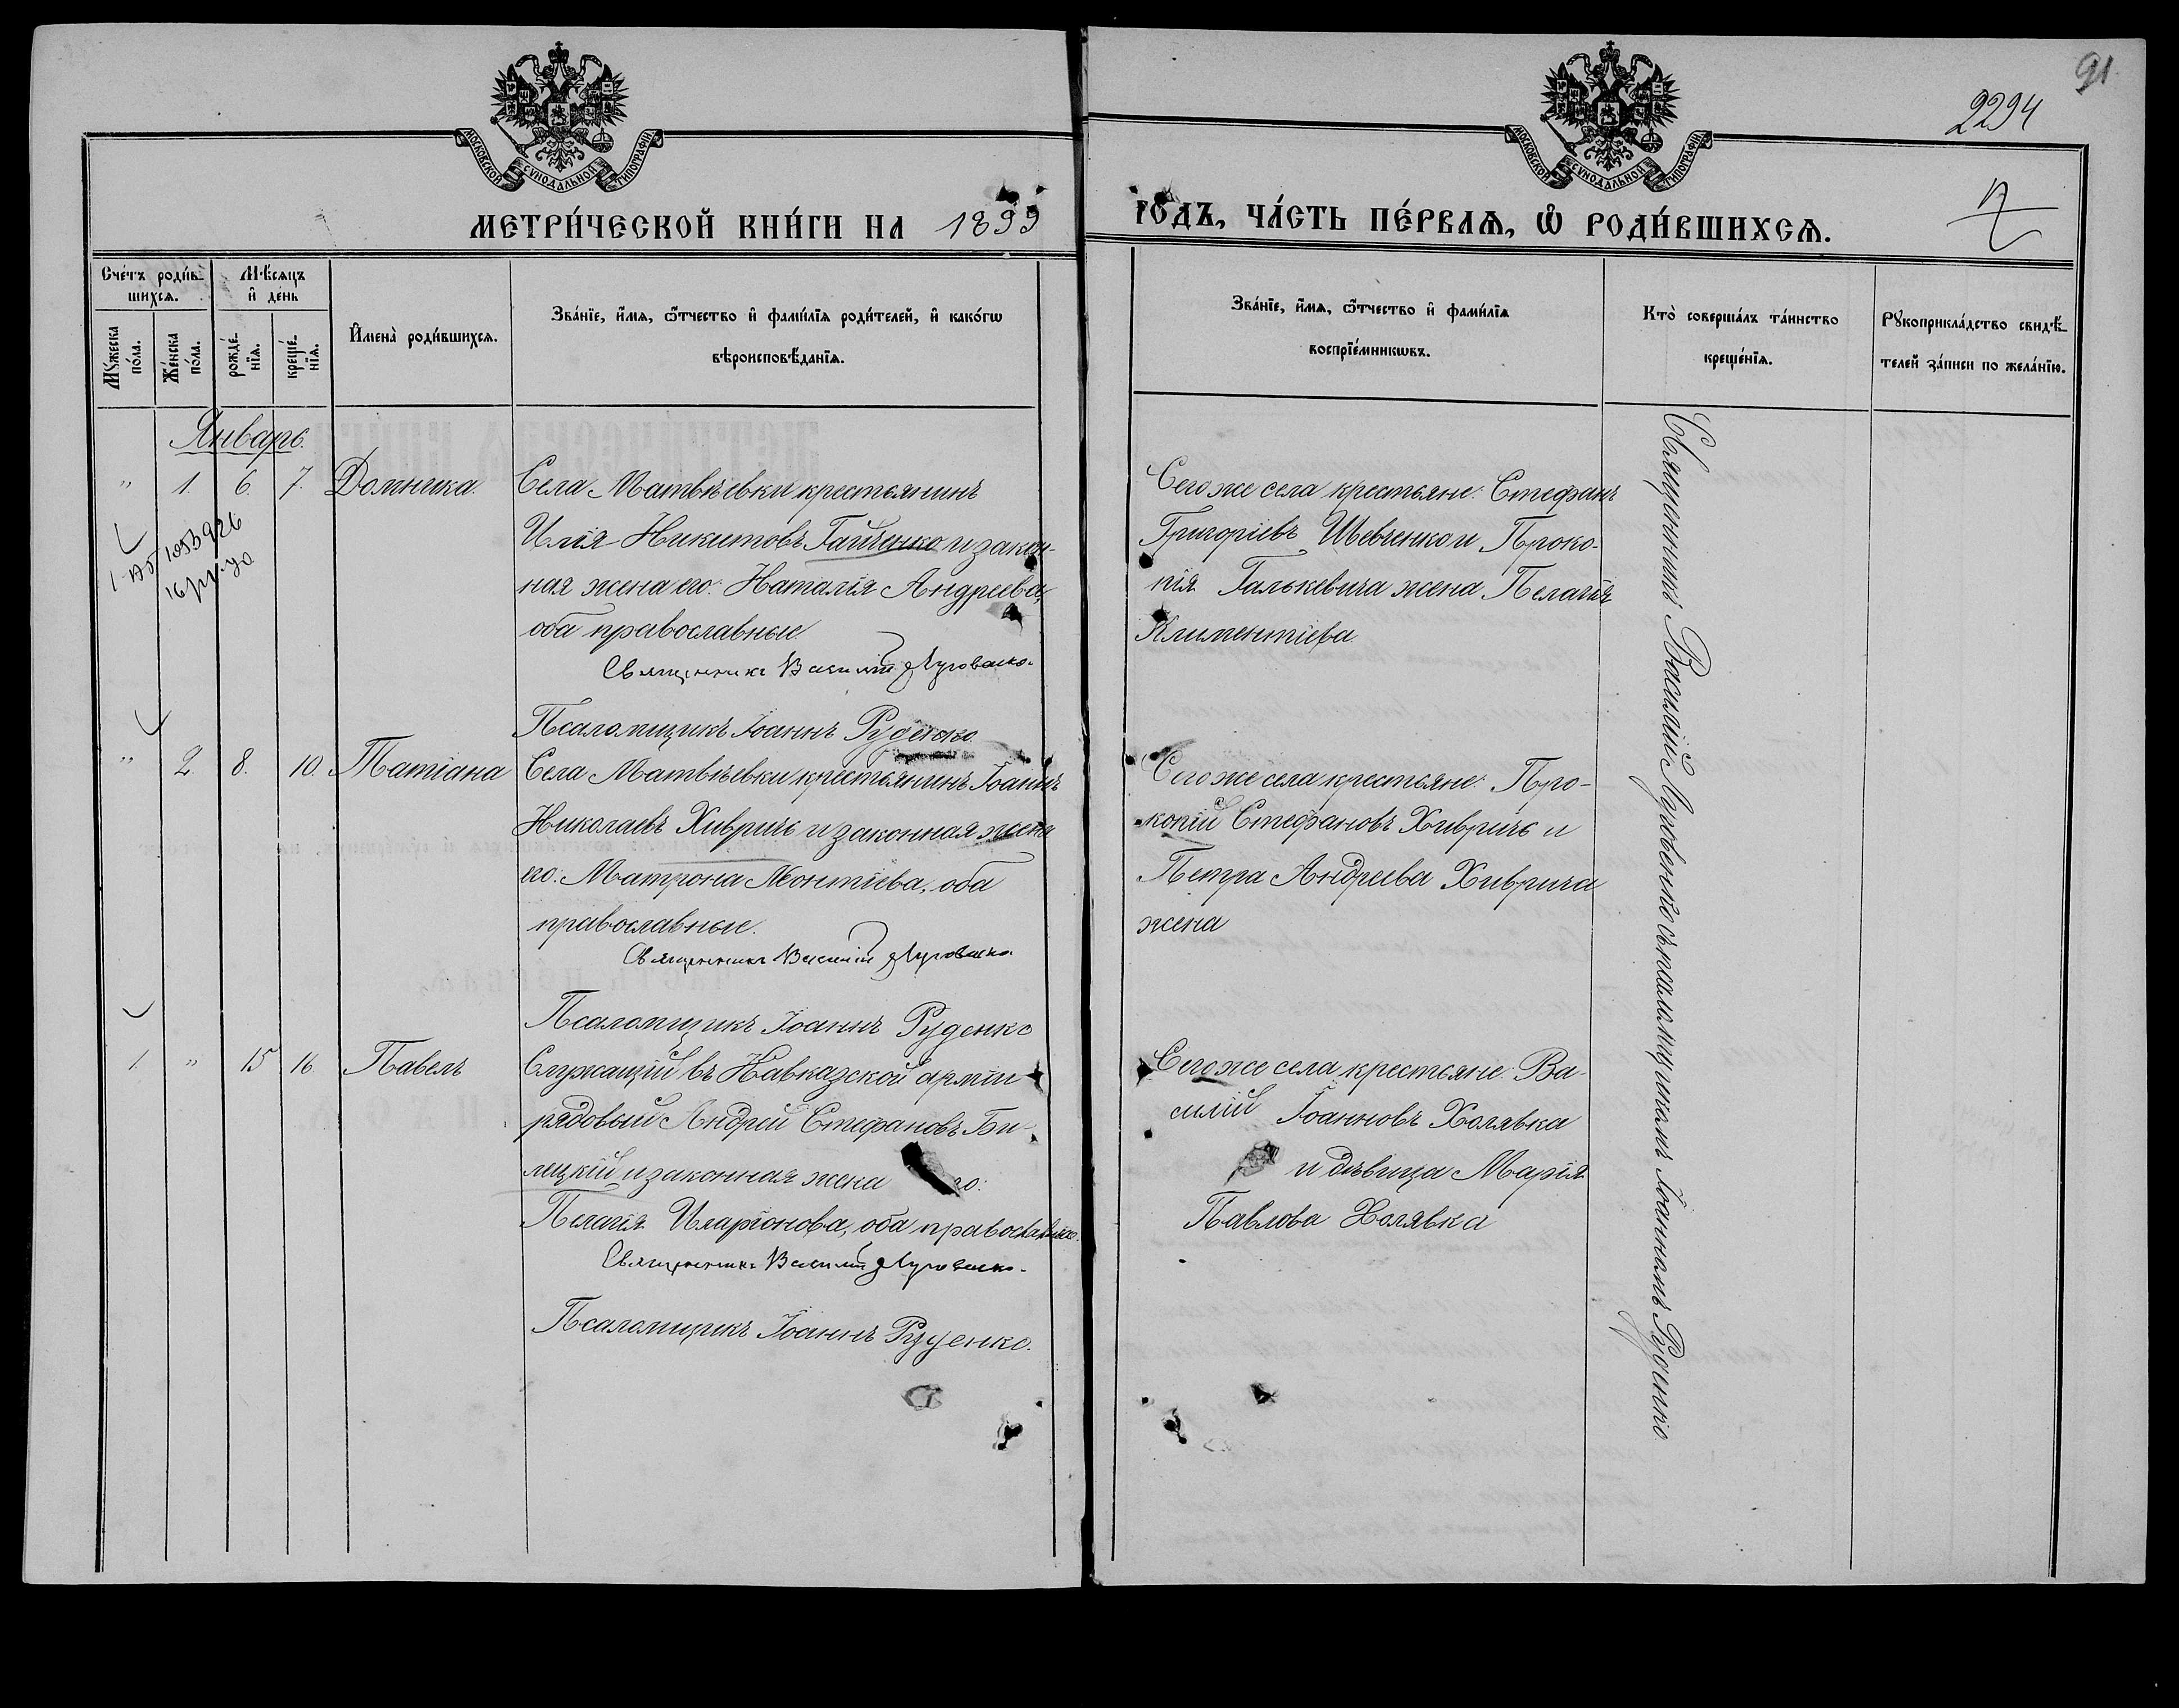 91
2294
МОСКОВСКОЙ СУНОДАЛЬНОЙ ТИПОГРАФІИ
МОСКОВСКОЙ СУНОДАЛЬНОЙ ТИПОГРАФІИ
МЕТРИ́ЧЕСКОЙ КНИ́ГИ НА 1899
ГОДЪ, ЧА́СТЬ ПЕ́РВАѦ, Ѡ҆ РОДИ́ВШИХСѦ.
Сче́тъ роди́в-
шихсѧ.
Мꙋжеска
по́ла.
Же́нска
по́ла.
Мѣ́сѧцъ
и҆ де́нь
рожде́-
нїѧ.
креще́-
нїѧ.
И҆мена̀ роди́вшихсѧ.
Зва́нїе, и҆́мѧ, ѻ҆́тчество и҆ фами́лїѧ роди́телей, и҆ како́гѡ
вѣроисповѣ́данїѧ.
Зва́нїе, и҆́мѧ, ѻ҆́тчество и҆ фами́лїѧ
воспрїе́мникѡвъ.
Кто̀ соверша́лъ та́инство
креще́нїѧ.
Рꙋкоприкла́дство свидѣ́-
телей за́писи по жела́нїю.
Январь.
" 1. 6. 7. Домника.
Села Матвѣевки крестьянинъ
Илія Никитовъ Гайченко и закон-
ная жена его: Наталія Андреева,
оба православные.
Священникъ Василій Луговенко.
Псаломщикъ Іоаннъ Руденко
Сего же села крестьяне: Стефанъ
Григоріевъ Шевченко и Проко-
пія Галькевича жена Пелагія
Климентіева.
1-АБ 1053926
" 2. 8. 10. Татіана
Села Матвѣевки крестьянинъ Іоаннъ
Николаевъ Хивричъ и законная жена
его: Матрона Леонтіева, оба
православные.
Священникъ Василій Луговенко
Псаломщикъ Іоаннъ Руденко
Сего же села крестьяне: Про-
копій Стефановъ Хивричъ и
Петра Андреева Хиврича
жена
1. " 15 16. Павелъ
Служащій въ Кавказской арміи
рядовый Андрей Стефановъ Би-
лецкій и законная жена его:
Пелагія Иларіонова, оба православные.
Священникъ Василій Луговенко.
Псаломщикъ Іоаннъ Руденко.
Сего же села крестьяне: Ва-
силій Іоанновъ Холявка
и дѣвица Марія
Павлова Холявка
Священникъ Василій Луговенко съ псаломщикомъ Іоанномъ Руденко